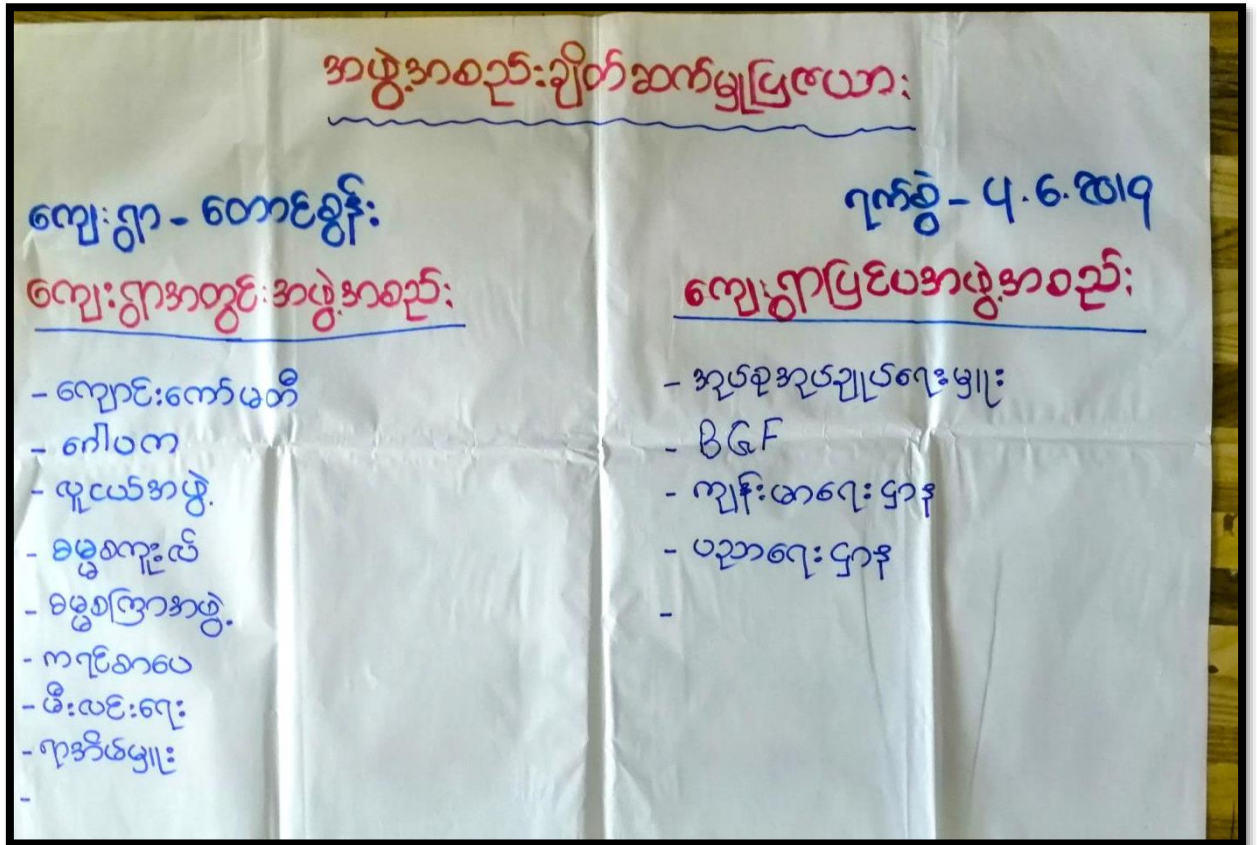 အဖွဲ့အစည်းချိတ်ဆက်မှုပြဇယား
ကျေးရွာ - တောင်စွန်း
ရက်စွဲ - ၄.6.2019
ကျေးရွာအတွင်းအဖွဲ့အစည်း
- ကျောင်းကော်မတီ
- ဂေါပက
- လူငယ်အဖွဲ့
- ဓမ္မစကူးလ်
- ဓမ္မစကြာအဖွဲ့
- ကရင်စာပေ
- မီးလင်းရေး
- ရာအိမ်မှူး
-
ကျေးရွာပြင်ပအဖွဲ့အစည်း
- အုပ်စုအုပ်ချုပ်ရေးမှူး
- BGF
- ကျန်းမာရေးဌာန
- ပညာရေးဌာန
-